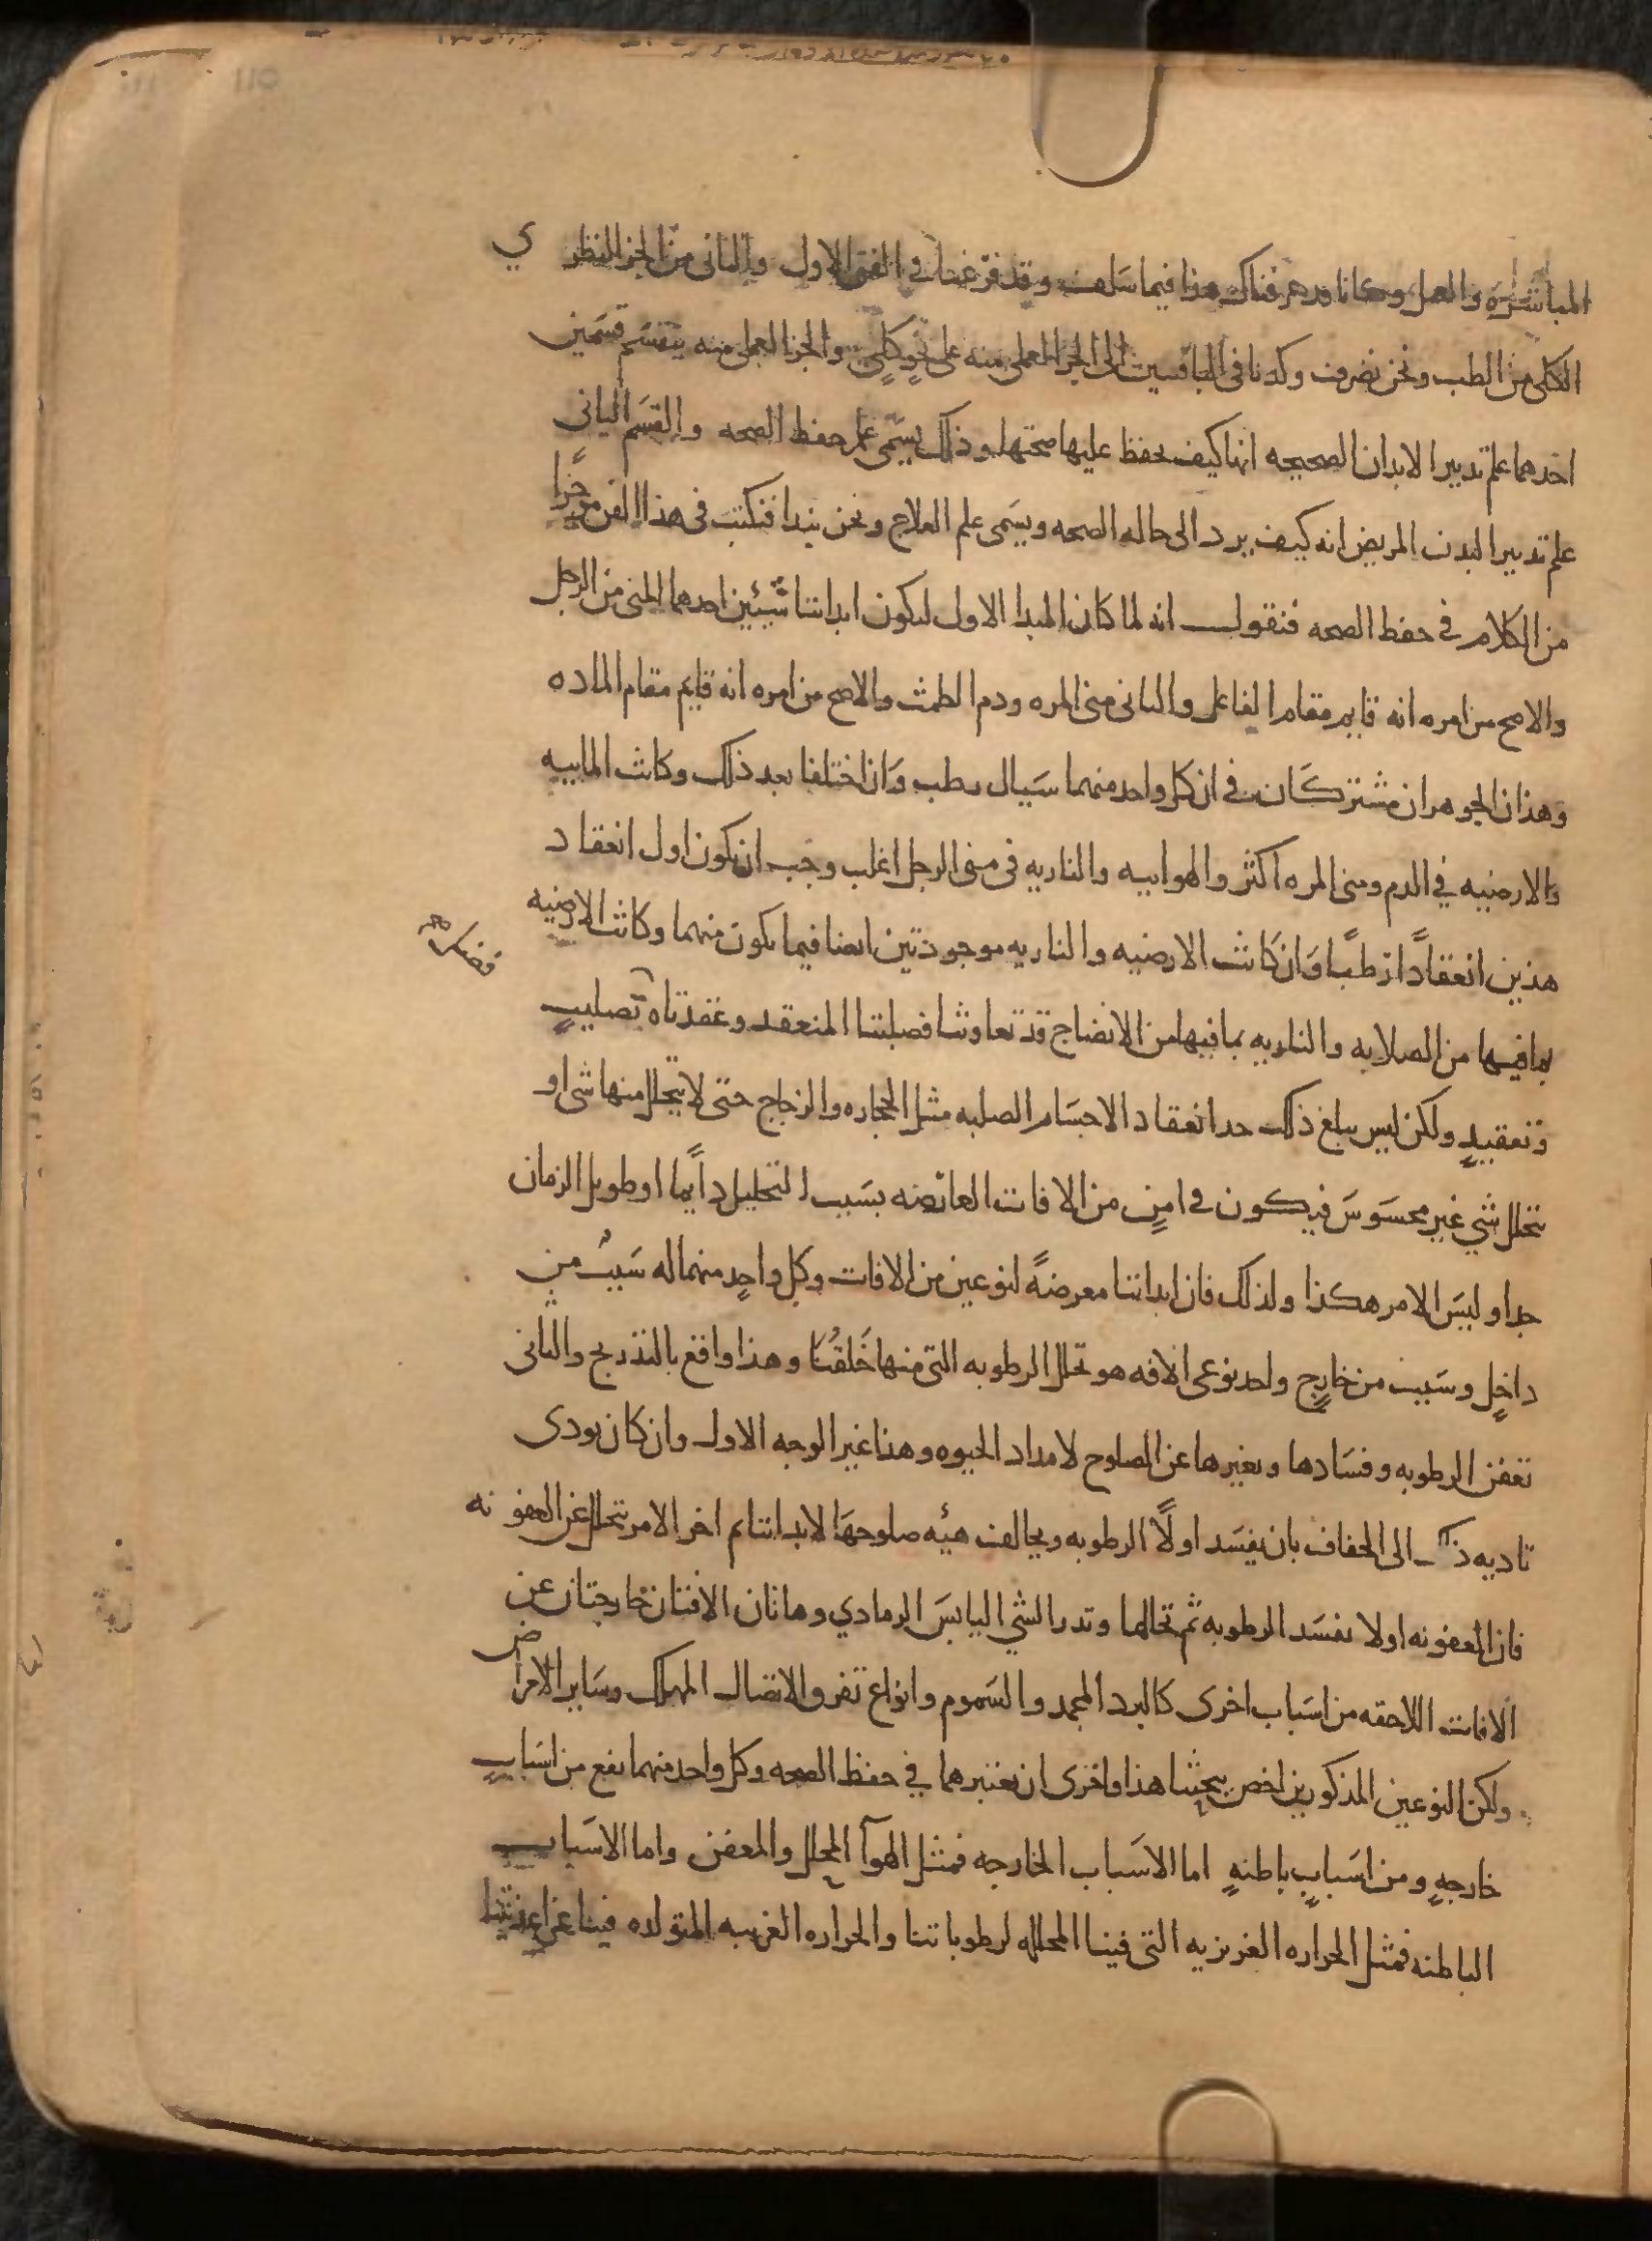 المباشره والعمل وكانا قد عرفناك هذا فيما سلف وقد فرغنا في الفن الاول والثاني من الجز النظري
الكلي من الطب ونحن نصرف وكدنا في الباقيين الى الجزا العملي منه على نحو كلي والجزا العملي منه ينقسم قسمين
احدهما علم تدبير الابدان الصحيحه انها كيف يحفظ عليها صحتها وذلك يسمى علم حفظ الصحه والقسم الثاني
علم تدبير البدن المريض انه كيف يرد الى حاله الصحه ويسمى علم العلاج ونحن نبدا فنكتب في هذا الفن موجزًا
من الكلام في حفظ الصحه فنقول انه لما كان المبدا الاول لتكون ابداننا شيئين احدهما المنى من الرجل
والاصح من امره انه قايم مقام الفاعل والثاني منى المره ودم الطمث والاصح من امره انه قايم مقام الماده
وهذان الجوهران مشتركان في ان كل واحد منهما سيال رطب وان اختلفا بعد ذلك وكانت المائيه
والارضيه في الدم ومنى المره اكثر والهوائيه والناريه في منى الرجل اغلب وجب ان يكون اول انعقاد
هذين انعقادًا رطبًا وان كانت الارضيه والناريه موجودتين ايضا فيما يكون منهما وكانت الارضيه
بما فيها من الصلابه والناريه بما فيها من الانضاج قد تعاونتا فصلبتا المنعقد وعقدتاه تصليبٍ
وتعقيدٍ ولكن ليس يبلغ ذلك حد انعقاد الاجسام الصلبه مثل الحجاره والزجاج حتى لا يتحلل منها شي او
يتحلل شي غير محسوس فيكون في امنٍ من الافات العارضه بسبب التحليل دايمًا او طويل الزمان
جدا وليس الامر هكذا ولذلك فان ابداننا معرضهً لنوعين من الافات وكل واحدٍ منهما له سببٌ من
داخلٍ وسبب من خارجٍ واحد نوعى الافه هو تحلل الرطوبه التي منها خُلقنا وهذا واقع بالتدريج والثاني
تعفن الرطوبه وفسادها وتغيرها عن الصلوح لامداد الحيوه وهذا غير الوجه الاول وان كان يودى
تاديه ذلك الى الجفاف بان يفسد اولًا الرطوبه ويخالف هيئه صلوحها لابداننا ثم اخر الامر يتحلل عن العفونه
فان العفونه اولا تفسد الرطوبه ثم تحللها وتدر الشي اليابس الرمادي وهاتان الافتان خارجتان عن
الافات اللاحقه من اسباب اخرى كالبرد المجمد والسموم وانواع تفرق الاتصال المهلك وساير الامراض
ولكن النوعين المذكورين اخص ببحثنا هذا واخرى ان نعتبرهما في حفظ الصحه وكل واحد منهما يقع من اسبابٍ
خارجهٍ ومن اسبابٍ باطنهٍ اما الاسباب الخارجه فمثل الهوآ المحلل والمعفن واما الاسباب
الباطنه فمثل الحراره الغريزيه التي فينا المحلله لرطوباتنا والحراره الغريبه المتولده فينا عن اغذيتنا